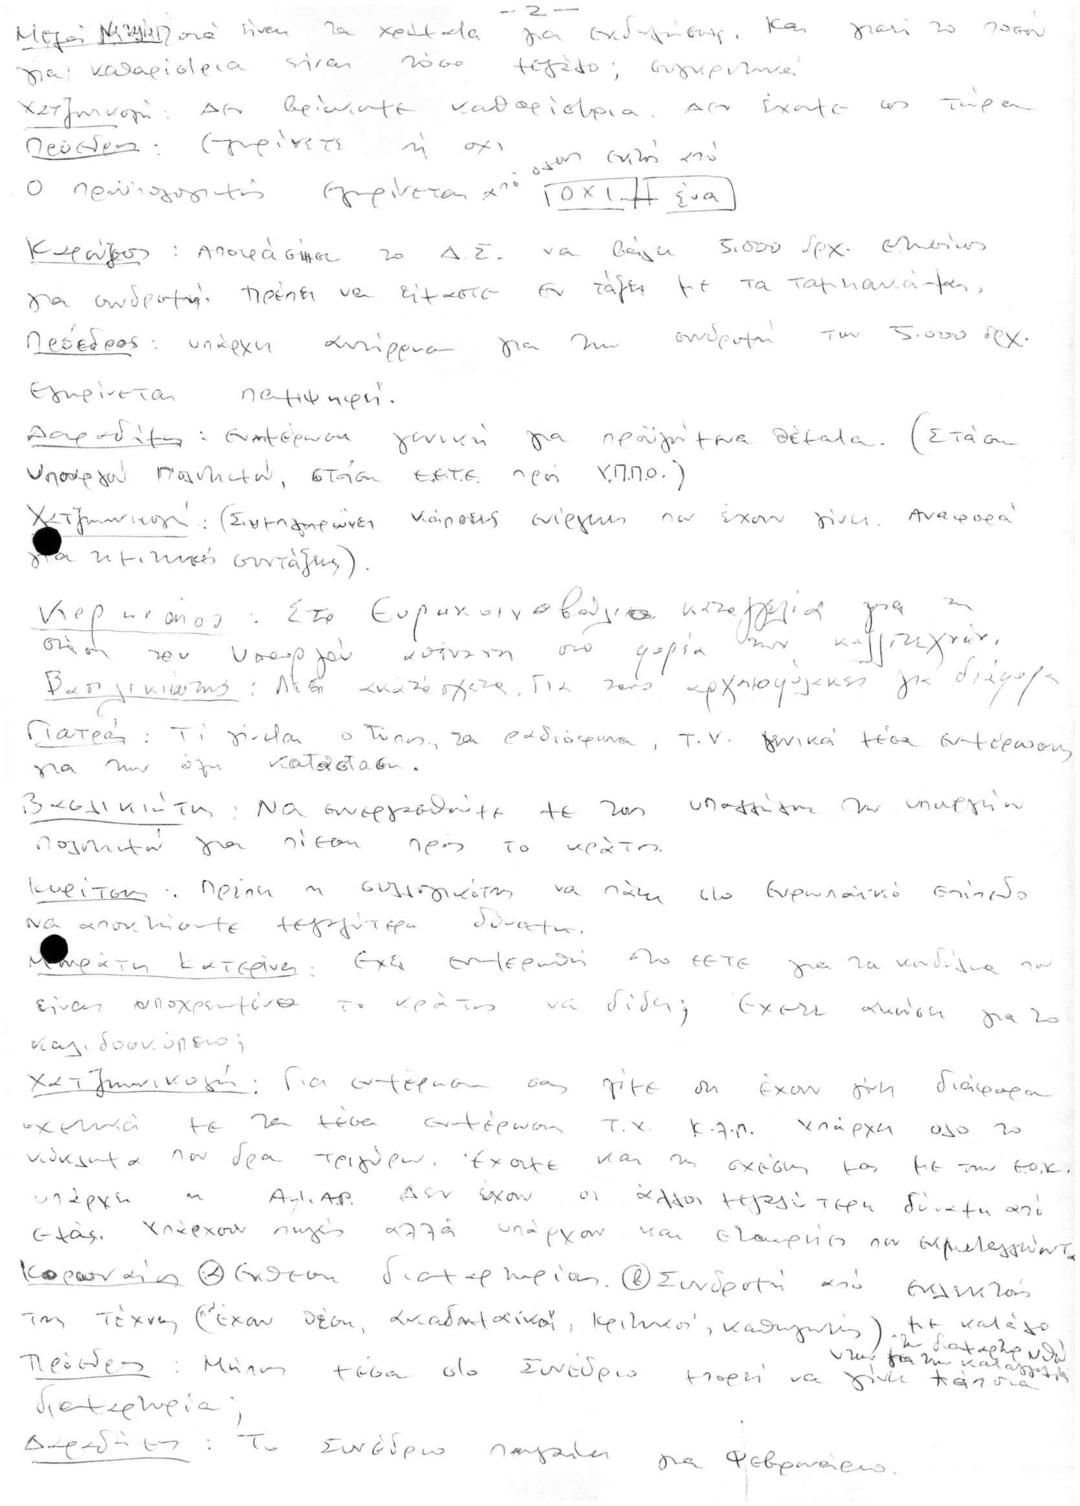 - 2 -
ποιά είναι τα χρήματα για εκδηλώσεις. Και γιατί το ποσόν
για καθαρίστρια είναι τόσο μεγάλο; συγκριτικά
Χατζηνικολή: Δεν βρίσκουμε καθαρίστρια. Δεν έχουμε ως τώρα
Πρόεδρος: Εγκρίνετε ή όχι
Ο προϋπολογισμός εγκρίνεται από όλους εκτός από ΟΧΙ ένα
: Αποφάσισε το Δ.Σ. να βάλει 5.000 δρχ. ετησίως
για συνδρομή. Πρέπει να είμαστε εν τάξει με τα ταμειακά μας.
Πρόεδρος: υπάρχει αντίρρηση για την συνδρομή των 5.000 δρχ.
Εγκρίνεται παμψηφεί.
Δαραδήμος: ενημέρωση γενική για προηγούμενα θέματα. (Στάση
Υπουργού Πολιτισμού, στάση Ε.Ε.Τ.Ε. προς Υ.Π.ΠΟ.)
Χατζηνικολή: (Συμπληρώνει κάποιες ενέργειες που έχουν γίνει. Αναφορά
για τιμητικές συντάξεις).
: Στο Ευρωκοινοβούλιο καταγγελία για τη
στάση του Υπουργού απέναντι στο φορέα των καλλιτεχνών.
Βασιλικιώτης: Λέει ακατάσχετα. Για τους αρχαιοφύλακες για διάφορα
Γιατράς: Τί γίνεται ο τύπος, τα ραδιόφωνα, T.V. γενικά μέσα ενημέρωσης
για την όλη κατάσταση.
Βασιλικιώτης: Να συνεργασθούμε με τους υπαλλήλους του υπουργείου
Πολιτισμού για πίεση προς το κράτος.
Κυρίτσης: Πρέπει η συλλογικότης να πάει στο ευρωπαϊκό επίπεδο
να αποκτήσουμε μεγαλύτερη δύναμη.
Κατερίνα: Έχει ενημερωθεί το ΕΕΤΕ για τα κονδύλια που
είναι υποχρεωμένο το κράτος να δίδει; Έχετε ακούσει για το
καλειδοσκόπιο;
Χατζηνικολή: Για ενημέρωση σας λέμε ότι έχουν γίνει διάφορα
σχετικά με τα μέσα ενημέρωσης Τ.Χ. κ.λ.π. Υπάρχει όλο το
κύκλωμα που δρα τριγύρω. Έχουμε και τη σχέση μας με την ΕΟΚ.
υπάρχει η Α.Ι.ΑΡ. Δεν έχουν οι άλλοι μεγαλύτερη δύναμη από
εμάς. Υπάρχουν πηγές αλλά υπάρχουν και εταιρείες που εκμεταλλεύονται
(α) Έκθεση διαμαρτυρίας. (β) Συνδρομή από εκλεκτούς
της τέχνης (που έχουν θέση, ακαδημαϊκοί, κριτικοί, καθηγητές) με κατάλο
την διαμαρτυρία
για την καταγγελία
Πρόεδρος: Μήπως μέσα στο Συνέδριο μπορεί να γίνει κάποια
διαμαρτυρία;
Δαραδήμος: Το Συνέδριο πηγαίνει για Φεβρουάριο.